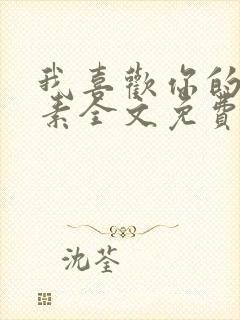 我喜歡你的
素全文免費
沈荃